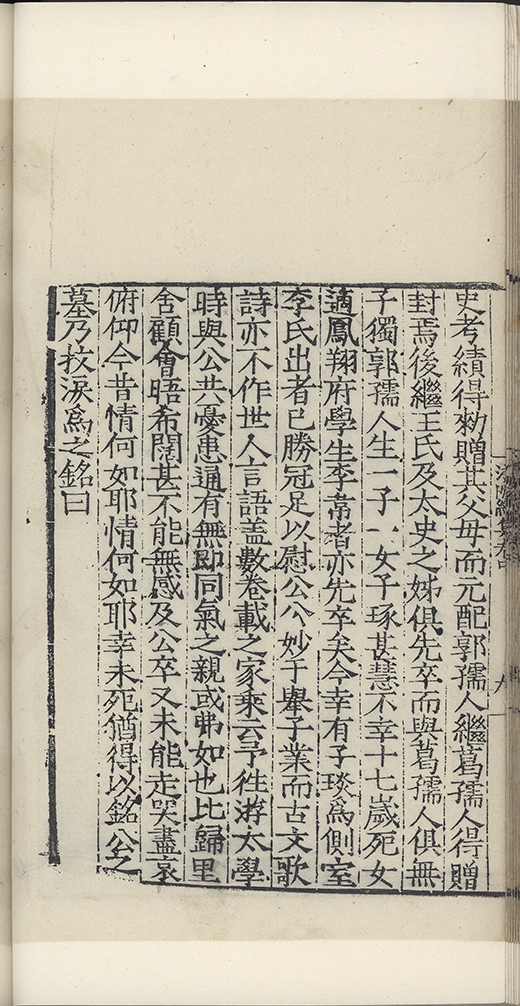 史考績得勑贈其父母而元配郭孺人繼葛孺人得贈
封焉後繼王氏及太史之姊俱先卒而與葛孺人俱無
子獨郭孺人生一子一女子琢甚慧不幸十七歲死女
適鳳翔府學生李常者亦先卒矣今幸有子琰爲側室
李氏出者已勝冠足以慰公公妙于舉子業而古文歌
詩亦不作世人言語盖數卷載之家乘云予徃游太學
時與公共憂患通有無即同氣之親或弗如也比歸里
舍顧會晤希闊甚不能無感及公卒又未能走哭盡哀
俯仰今昔情何如耶情何如耶幸未死猶得以銘公之
墓乃抆淚爲之銘曰